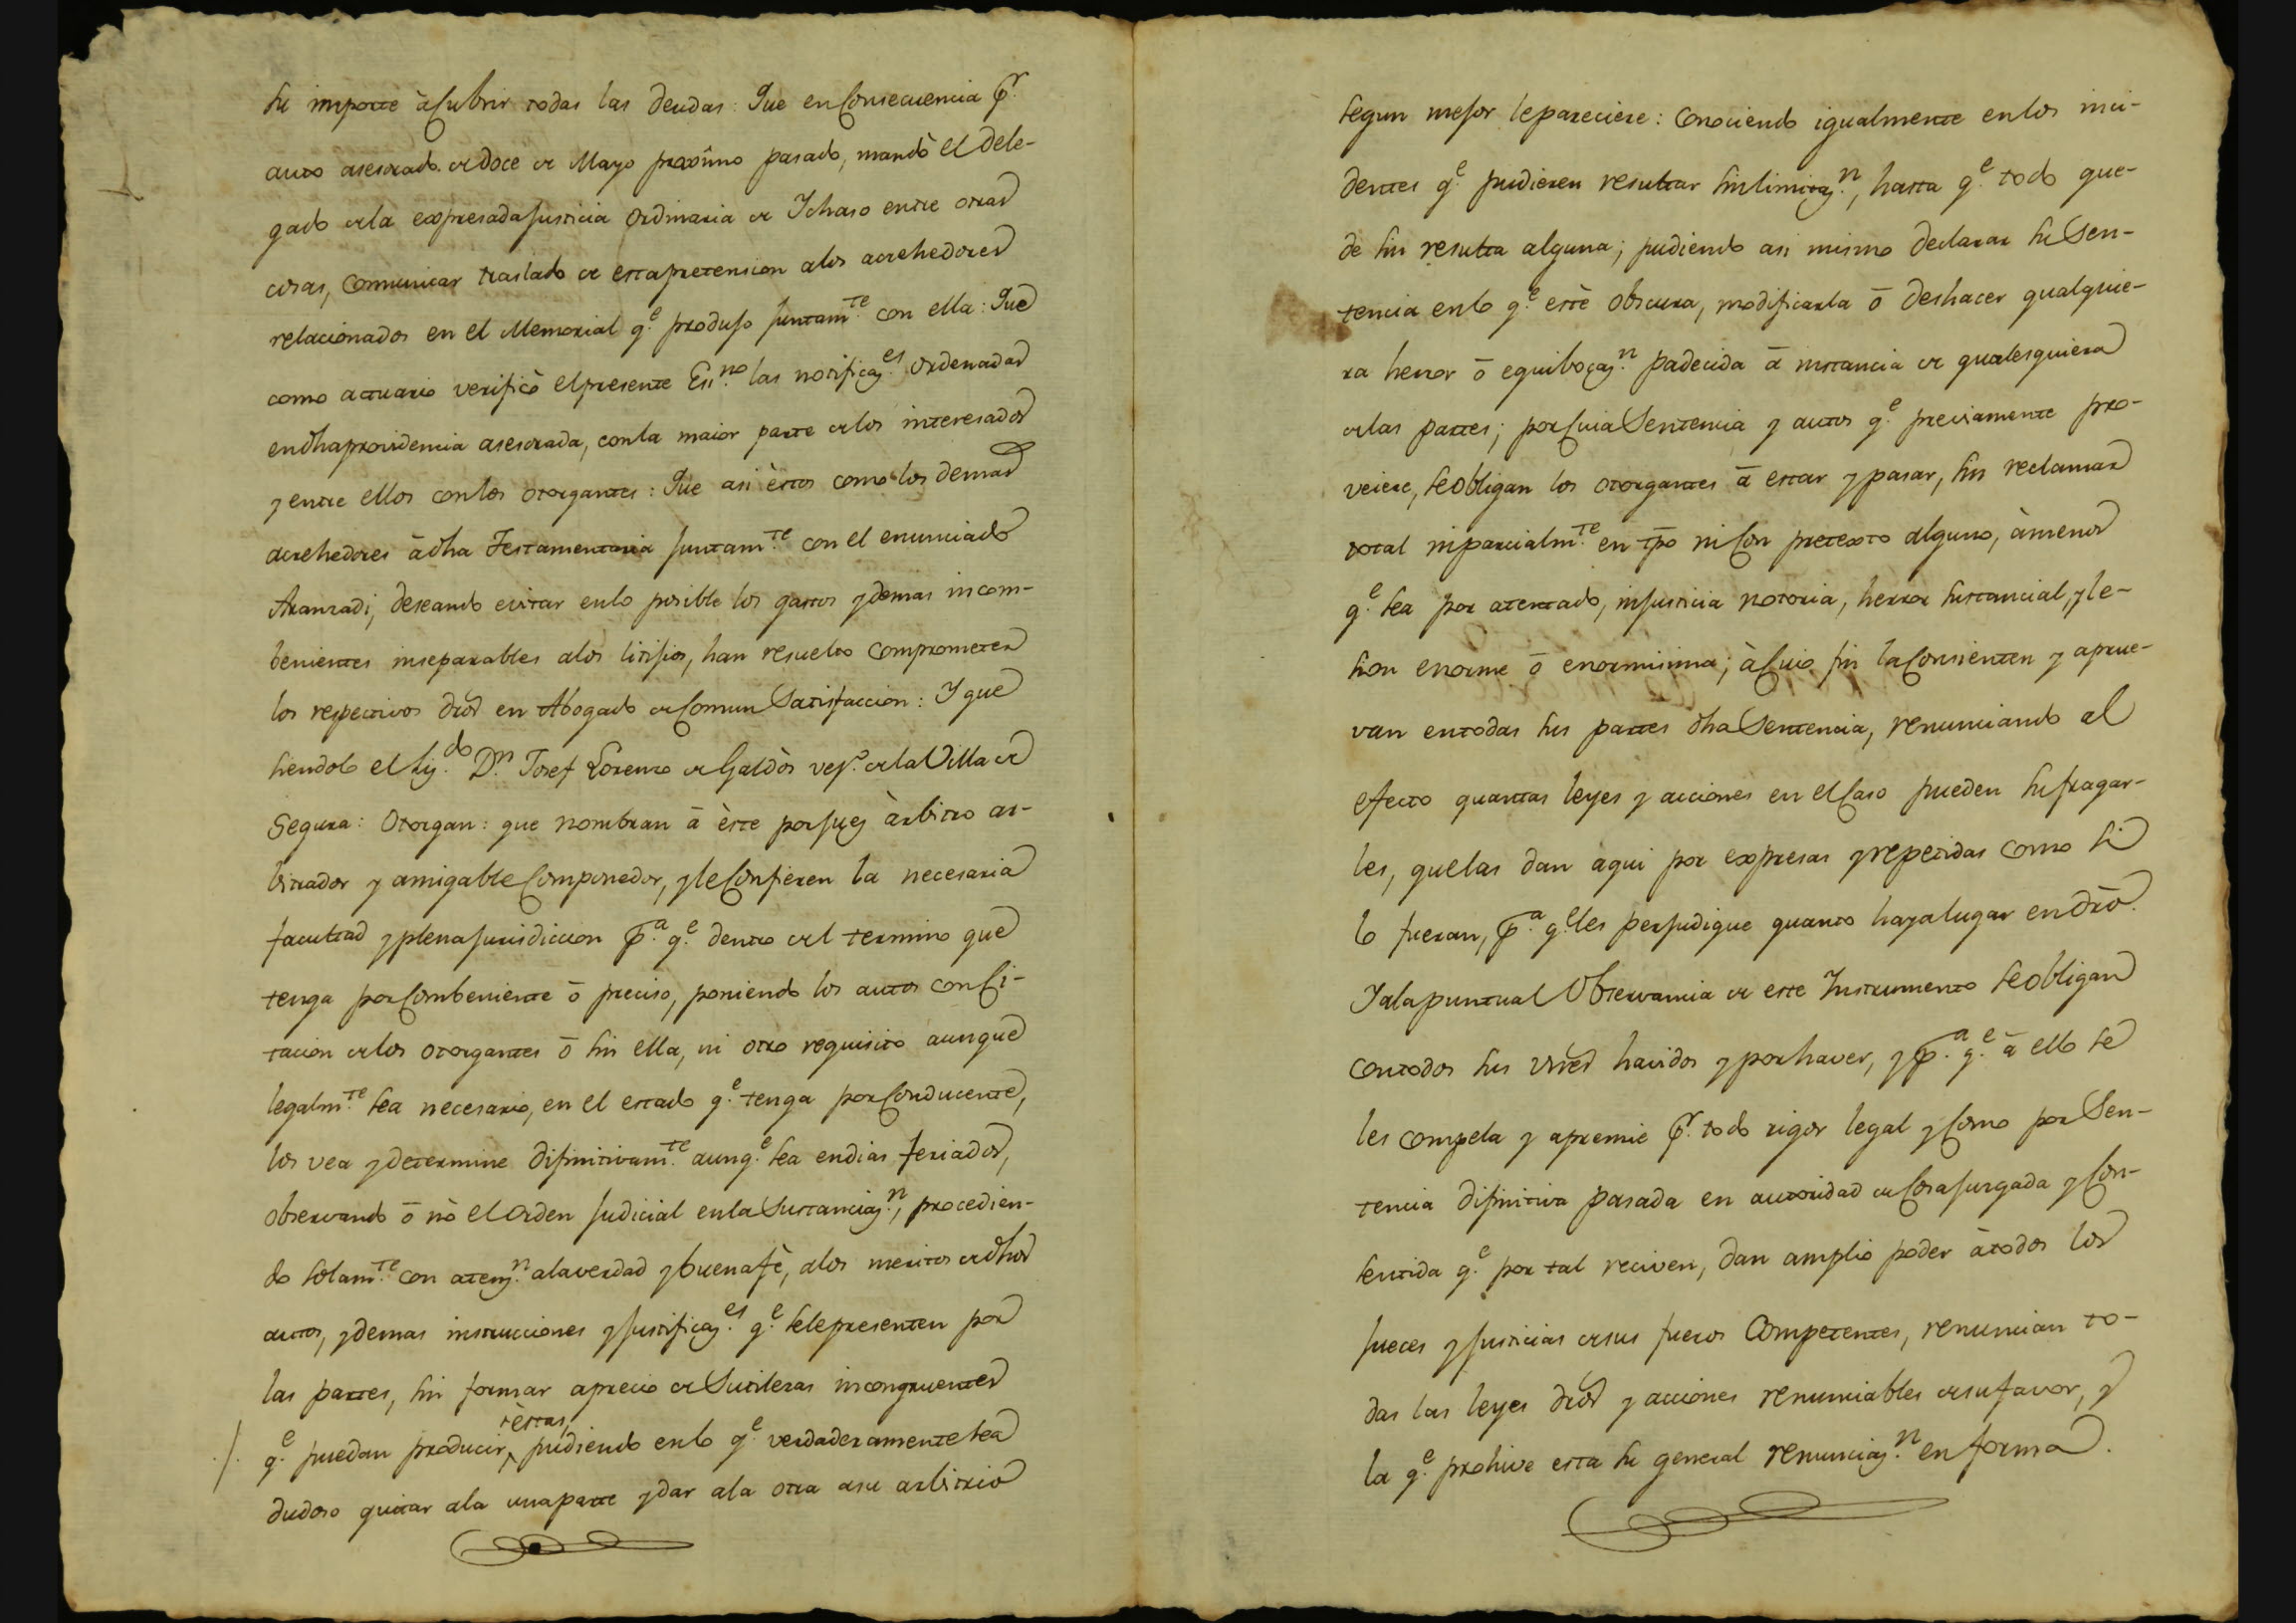 su importe à cubrir todas las deudas: Que en consecuencia pr.
auto asesorado de doce de Mayo proximo pasado, mandò el Dele-
gado de la expresada Justicia Ordinaria de Ichaso entre otras
cosas, comunicar traslado de esta pretension a los acrehedores
relacionados en el Memorial q.e produjo juntam.te con ella: Que
como actuario verificò el presente Es.no las notificaz.es ordenadas
en dha providencia asesorada, con la maior parte de los interesados
y entre ellos con los otorgantes: Que asi èstos como los demas
acrehedores à dha Testamentaria juntam.te con el enunciado
Aranzadi, deseando evitar en lo posible los gastos y demas incom-
benientes inseparables a los litijios, han resuelto comprometer
los respectivos dros en Abogado de comun Satisfaccion: Y que
siendolo el Liz.do D.n Josef Lorenzo de Galdòs vez.o de la Villa de
Segura: Otorgan: que nombran ā èste por juez àrbitro ar-
bitrador y amigable componedor, y le confieren la necesaria
facultad y plena jurisdiccion p.a q.e dentro del termino que
tenga por combeniente ō preciso, poniendo los autos con Ci-
tacion de los otorgantes ō sin ella, ni otro requisito aunque
legalm.te sea necesario, en el estado q.e tenga por conducente,
los vea y determine difinitivam.te aunq.e sea en dias feriados,
observando ō nò el Orden judicial en la Sustanciaz.n, procedien-
do solam.te con atenz.n a la verdad y buena fè, a los meritos de dhos
autos, y demas instrucciones y justificaz.es q.e se le presenten por
las partes, sin formar aprecio de Sutilezas incongruentes
èstas,
q.e puedan producir, pudiendo en lo q.e verdaderamente sea
dudoso quitar a la una parte y dar a la otra a su arbitrio
segun mejor le pareciere: conociendo igualmente en los inci-
dentes q.e pudieren resultar sin limitaz.n, hasta q.e todo que-
de sin resulta alguna; pudiendo asi mismo declarar su Sen-
tencia en lo q.e estè obscura, modificarla ō deshacer qualquie-
ra herror ō equibocaz.n padecida ā instancia de qualesquiera
de las partes; por cuia Sentencia y autos q.e previamente pro-
veiere, se obligan los otorgantes ā estar y pasar, sin reclamar
total ni parcialm.te en tpo ni con pretexto alguno, àmenos
q.e sea por atentado, injusticia notoria, herror sustancial, y le-
sion enorme ō enormisima; à cuio fin la consienten y aprue-
van en todas sus partes dha Sentencia, renunciando al
efecto quantas leyes y acciones en el caso pueden sufragar-
les, que las dan aqui por expresas y repetidas como si
lo fueran, p.a q.e les perjudique quanto haya lugar en dro.
Y a la puntual Observancia de este Instrumento se obligan
con todos sus vienes havidos y por haver, y p.a q.e ā ello se
les compela y apremie pr. todo rigor legal y como por Sen-
tencia difinitiva pasada en autoridad de cosa juzgada y con-
sentida q.e por tal reciven, dan amplio poder à todos los
jueces y justicias de sus fueros competentes, renuncian to-
das las leyes dros y acciones renunciables de su favor, y
la q.e prohive esta su general renunciaz.n en forma.